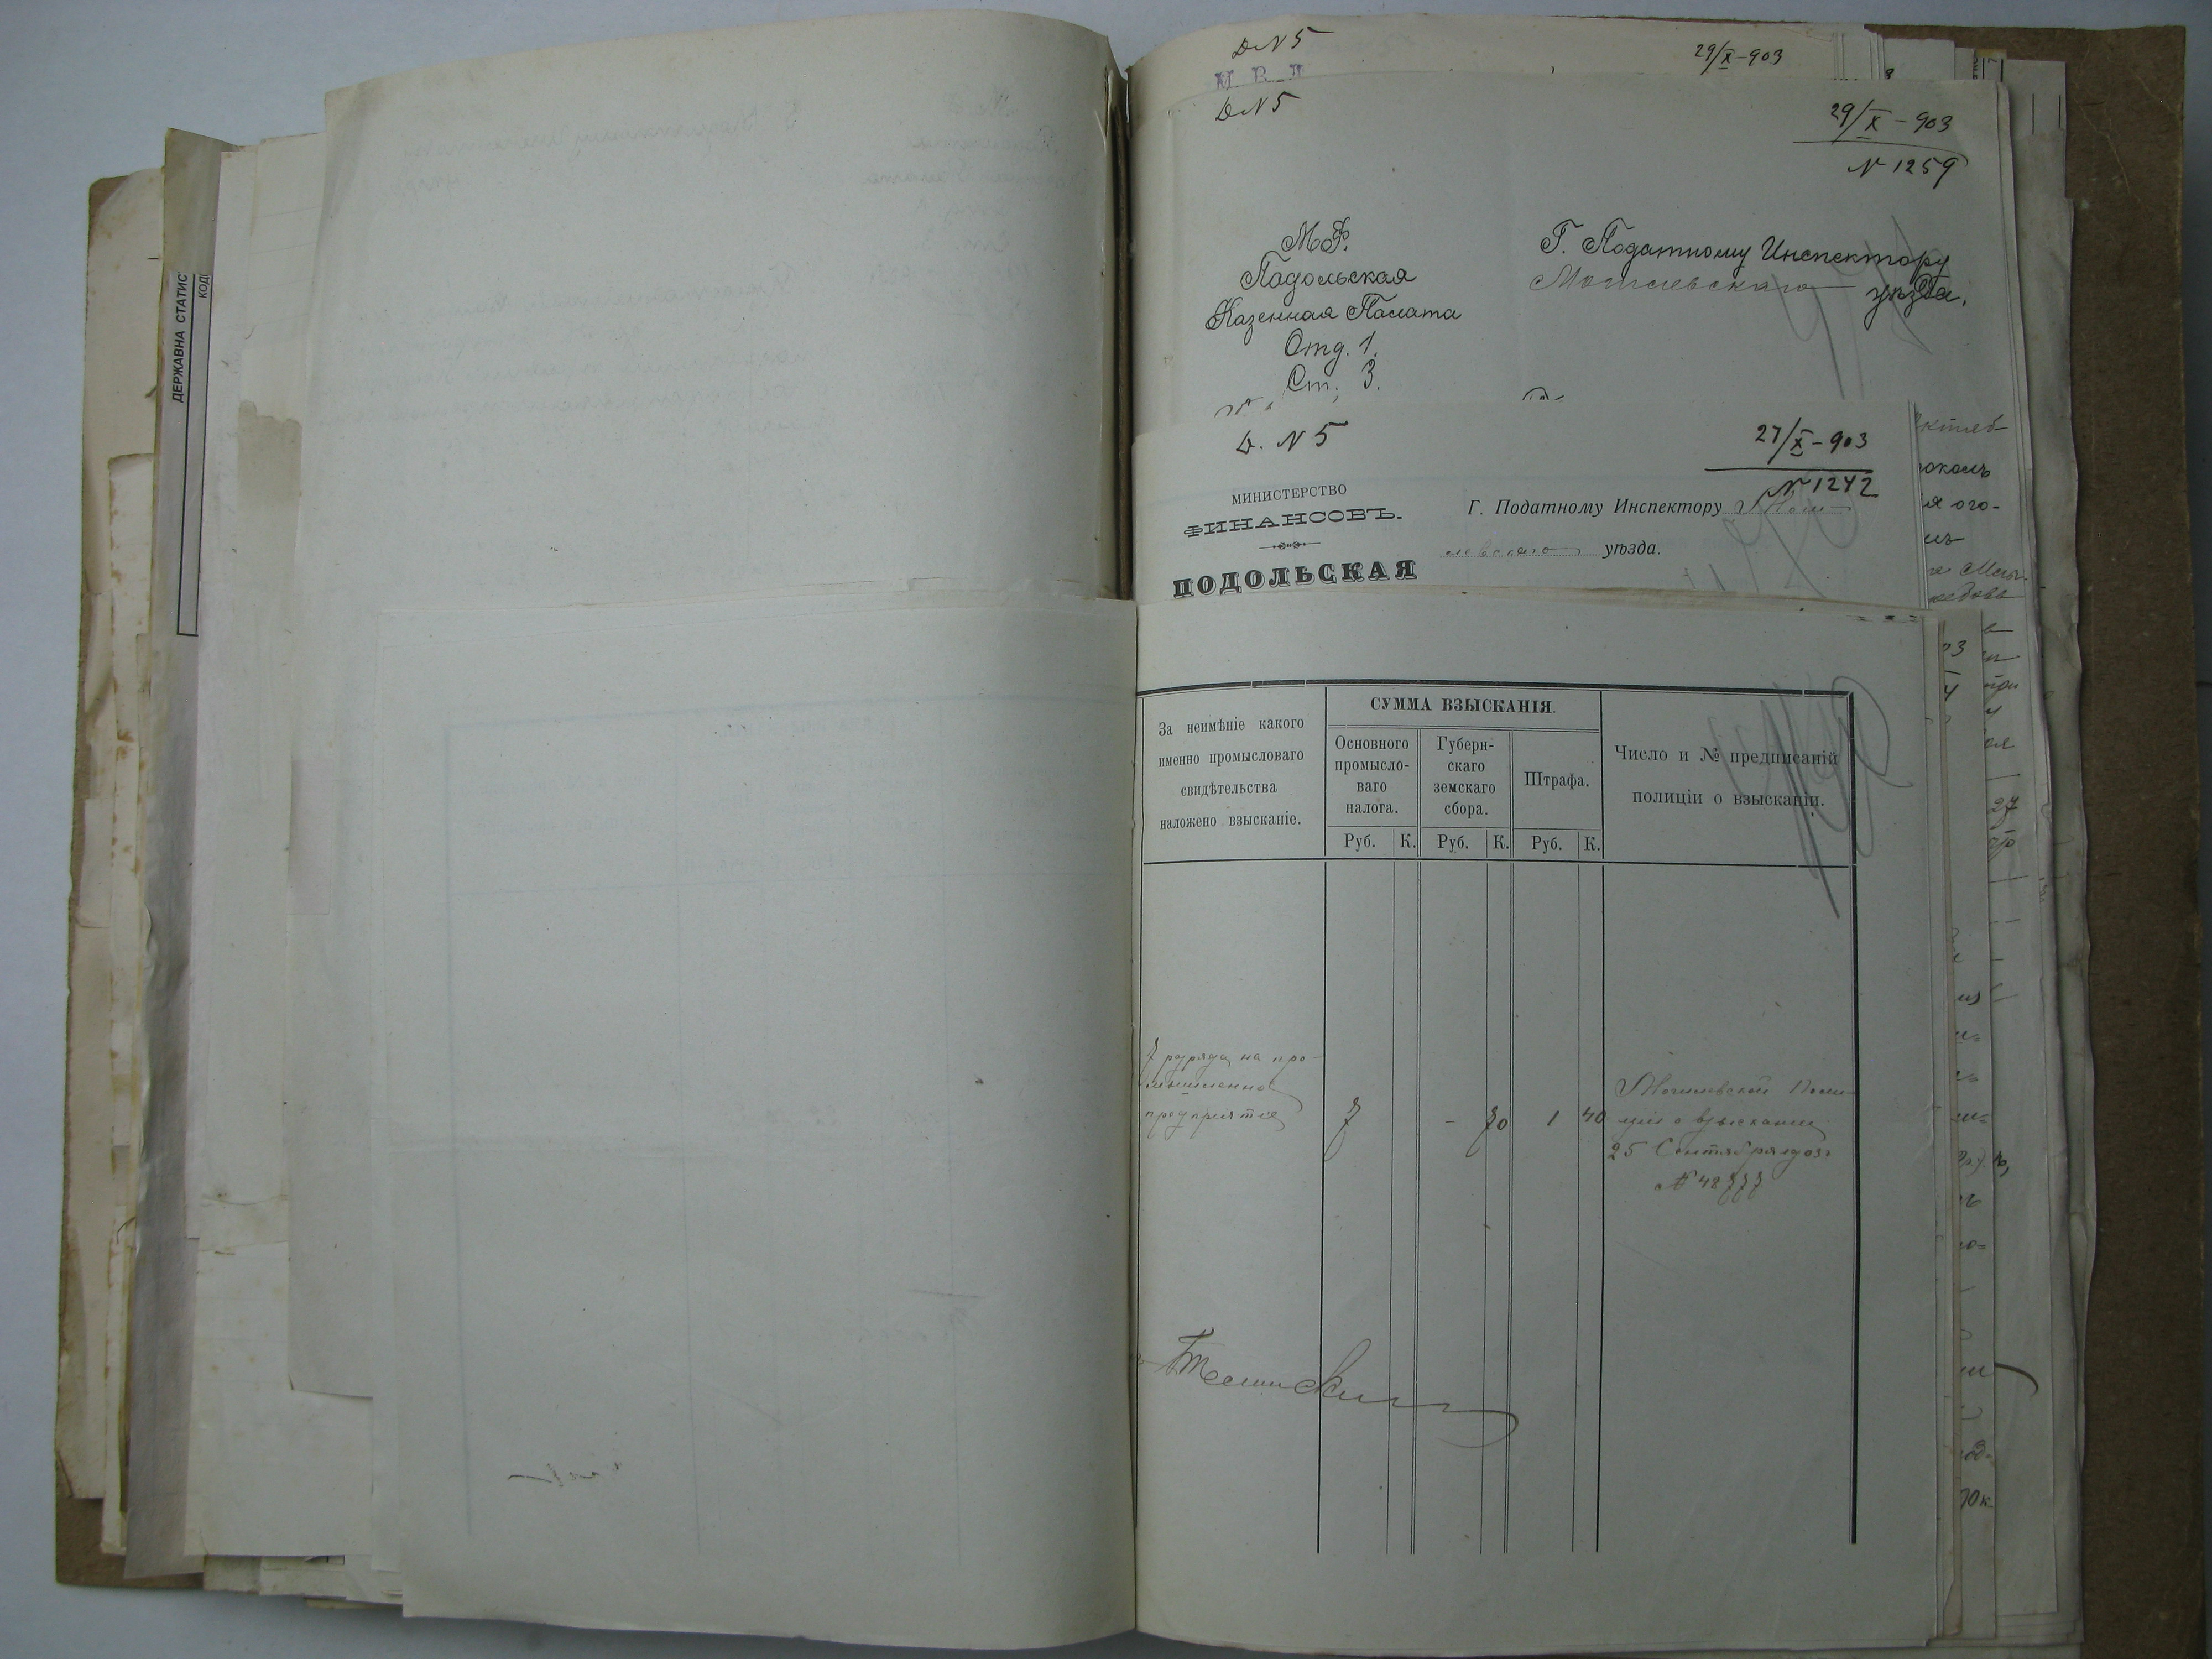 ДЕРЖАВНА СТАТИС
КОД
Д N 5
29/X-903
М. В. Д
Д N 5
29/X - 903
N 1259
М.Ф.
Подольская
Казенная Палата
Отд. 1.
Ст. 3.
Г. Податному Инспектору
Могилевскаго уѣзда.
Д. N 5
27/X - 903
N 1242
МИНИСТЕРСТВО
ФИНАНСОВЪ.
ПОДОЛЬСКАЯ
Г. Податному Инспектору Моги
левскаго уѣзда.
За неимѣніе какого
именно промысловаго
свидѣтельства
наложено взысканіе.
СУММА ВЗЫСКАНІЯ.
Основного
промысло-
ваго
налога.
Губерн-
скаго
земскаго
сбора.
Штрафа.
Руб. К. Руб. К. Руб. К.
Число и № предписаній
полиціи о взысканіи.
7 разряда на про-
мышленно
предпріятіе
7 - 70 1 40
Могилевской Поли-
ціи о взысканіи
25 Сентября 1903
N 48777